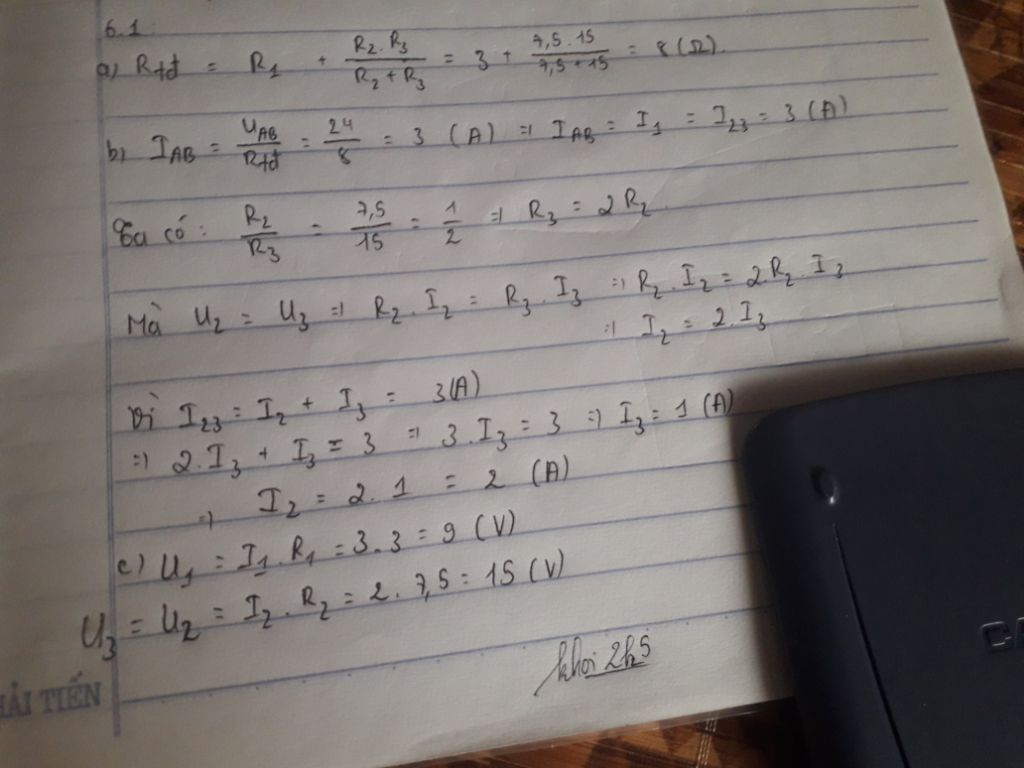 6.1.
a) Rtđ = R1 + R2.R3/R2+R3 = 3 + 7,5.15/7,5+15 = 8(Ω).
b) IAB = UAB/Rtđ = 24/8 = 3 (A) => IAB = I1 = I23 = 3(A)
Ta có: R2/R3 = 7,5/15 = 1/2 => R3 = 2R2
Mà U2 = U3 => R2.I2 = R3.I3 => R2.I2 = 2.R2.I3
=> I2 = 2.I3
Vì I23 = I2 + I3 = 3(A)
=> 2.I3 + I3 = 3 => 3.I3 = 3 => I3 = 1(A)
=> I2 = 2.1 = 2 (A)
c) U1 = I1.R1 = 3.3 = 9 (V)
U3 = U2 = I2.R2 = 2.7,5 = 15 (V)
khoi2k5
HẢI TIẾN
CA